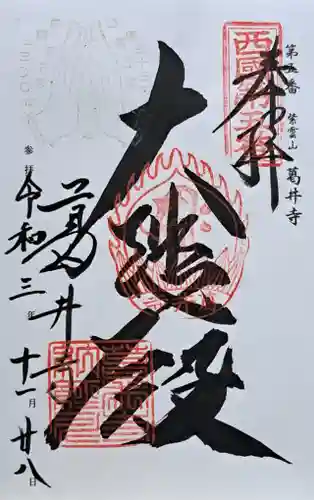 第五番 紫雲山 葛井寺
奉拝
西國第五番
大悲殿
葛井寺
参拝
令和三年十一月廿八日